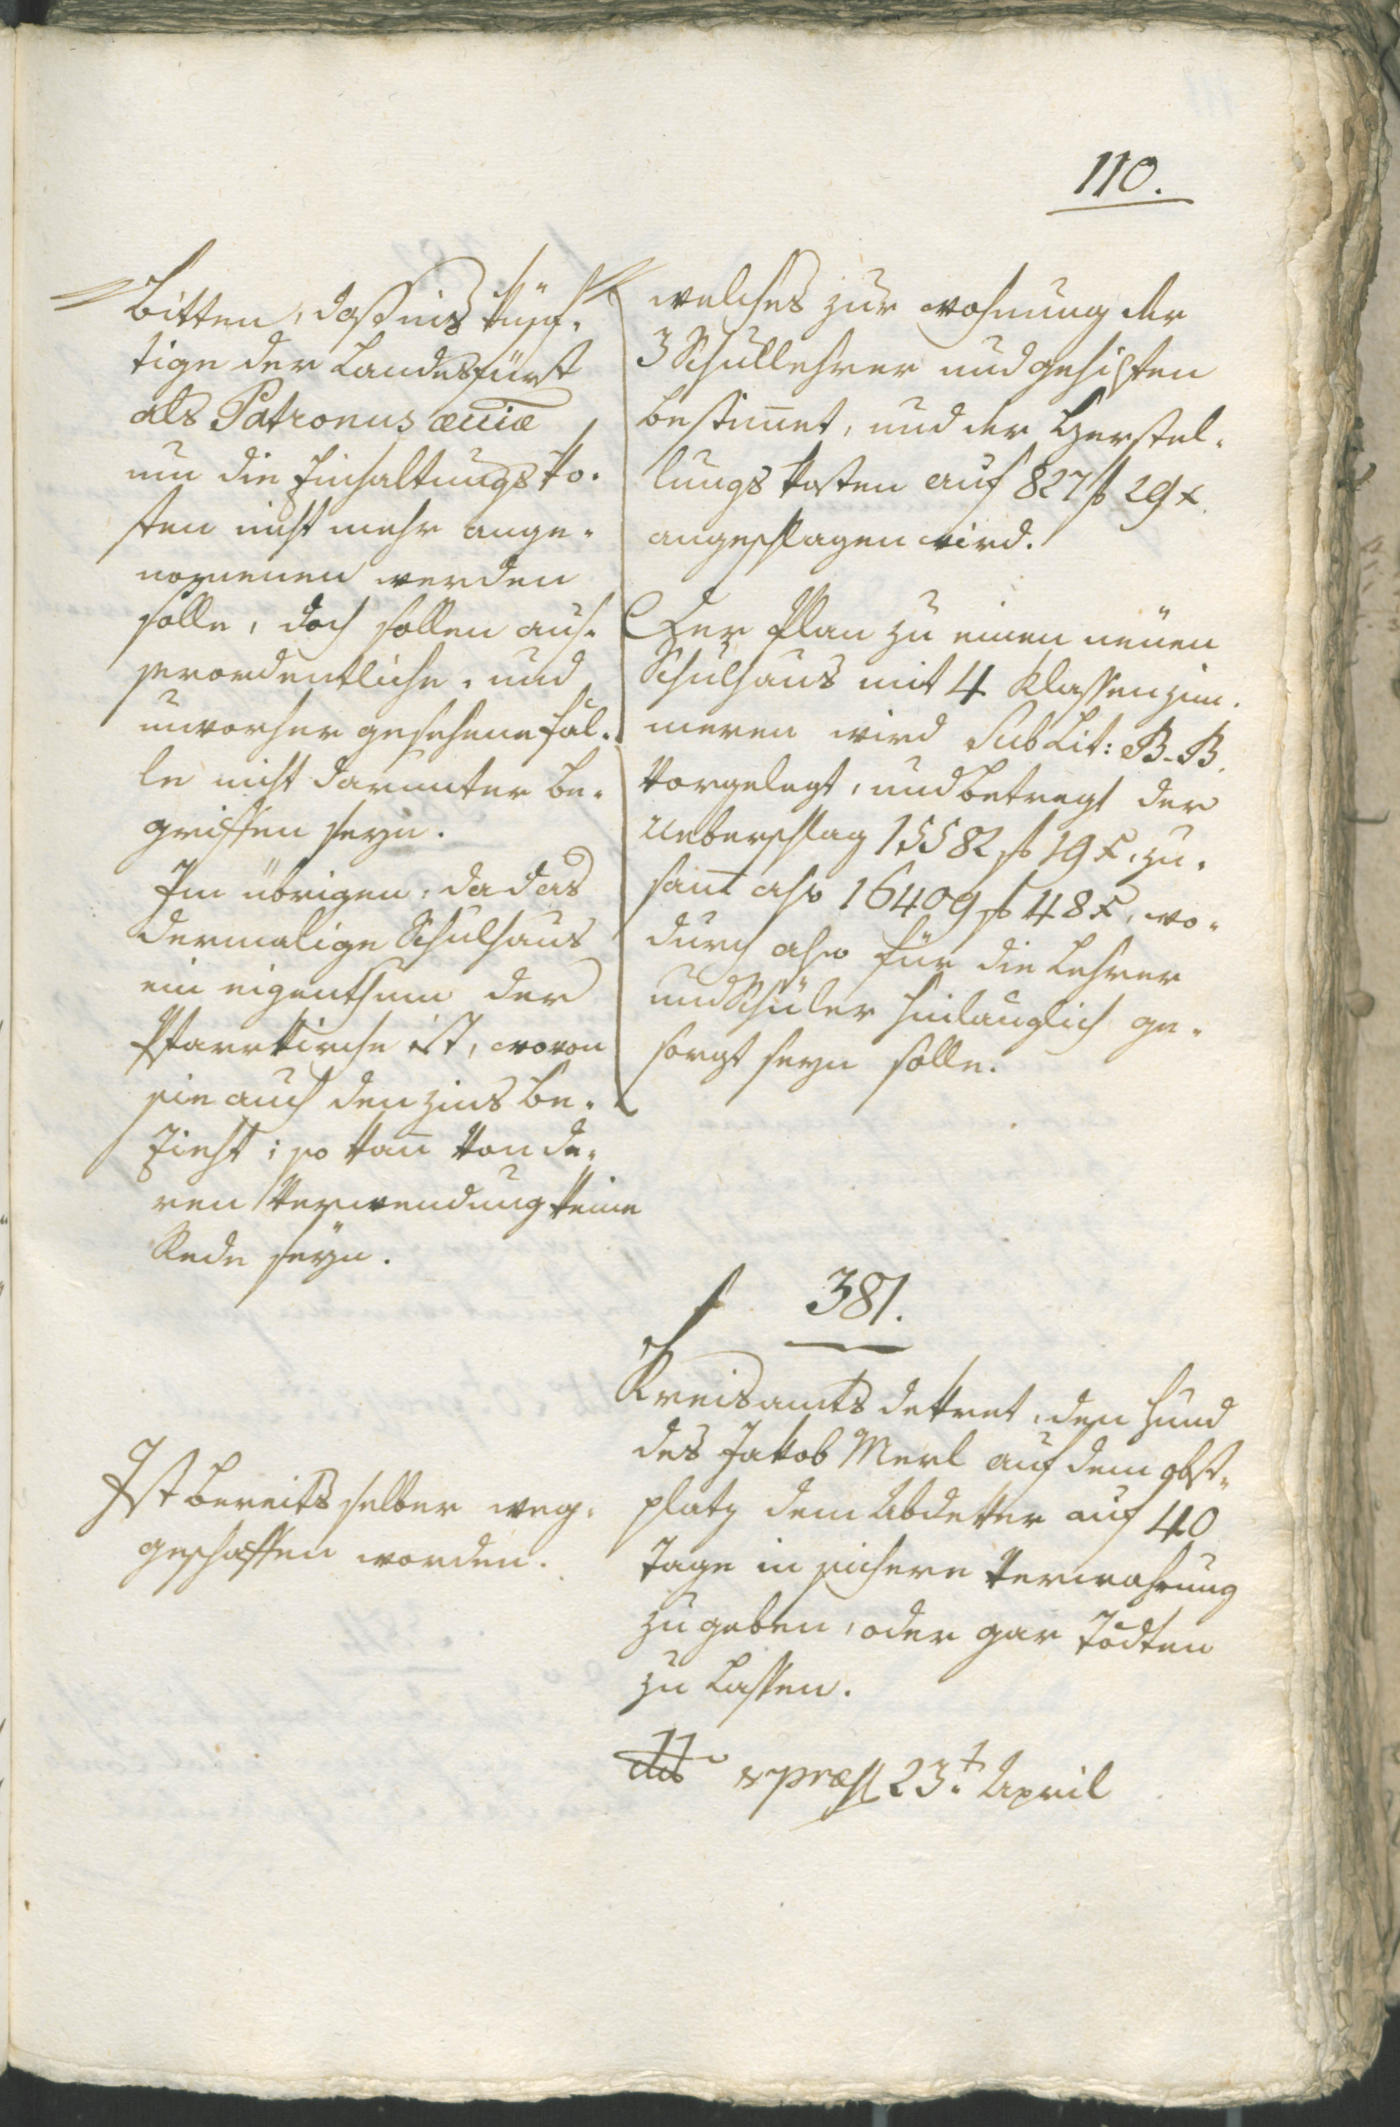 110.
bitten, daß ins künf-
tige der Landesfürst
als Patronus ecciæ
um die Einhaltungs ko-
sten nicht mehr ange-
nommen werden
solle, doch sollen aus-
serordentliche, und
unvorher gesehene fäl-
le nicht darunter be-
griffen seyn.
Im übrigen, da das
dermalige Schulhaus
ein eigenthum der
Pfarrkirche ist, wovon
sie auch den zins be-
zieht; so kan̄ von de-
ren Verwendung keine
Rede seÿn.
Ist bereits selber weg-
geschaffen worden.
welches zur wohnung der
3 Schullehrer und gehilfen
bestim̄et, und der Herstel-
lungs kosten auf 827 f 29 x
angeschlagen wird.
Der Plan zu einen neuen
Schulhaus mit 4 Klassenzim-
mern wird Sub Lit: B. B.
vorgelegt, und betragt der
Ueberschlag 15582 f 19 x, zu-
sam̄t also 16409 f 48 x, wo-
durch also für die Lehrer
und Schüler hinlänglich ge-
sorgt seyn solle.
381.
Kreisamts dekret, den Hund
des Jakob Merl auf dem obst-
platz dem Abdeker auf 40
Tage in sichere Verwahrung
zu geben, oder gar Tödten
zu lassen.
23t. April